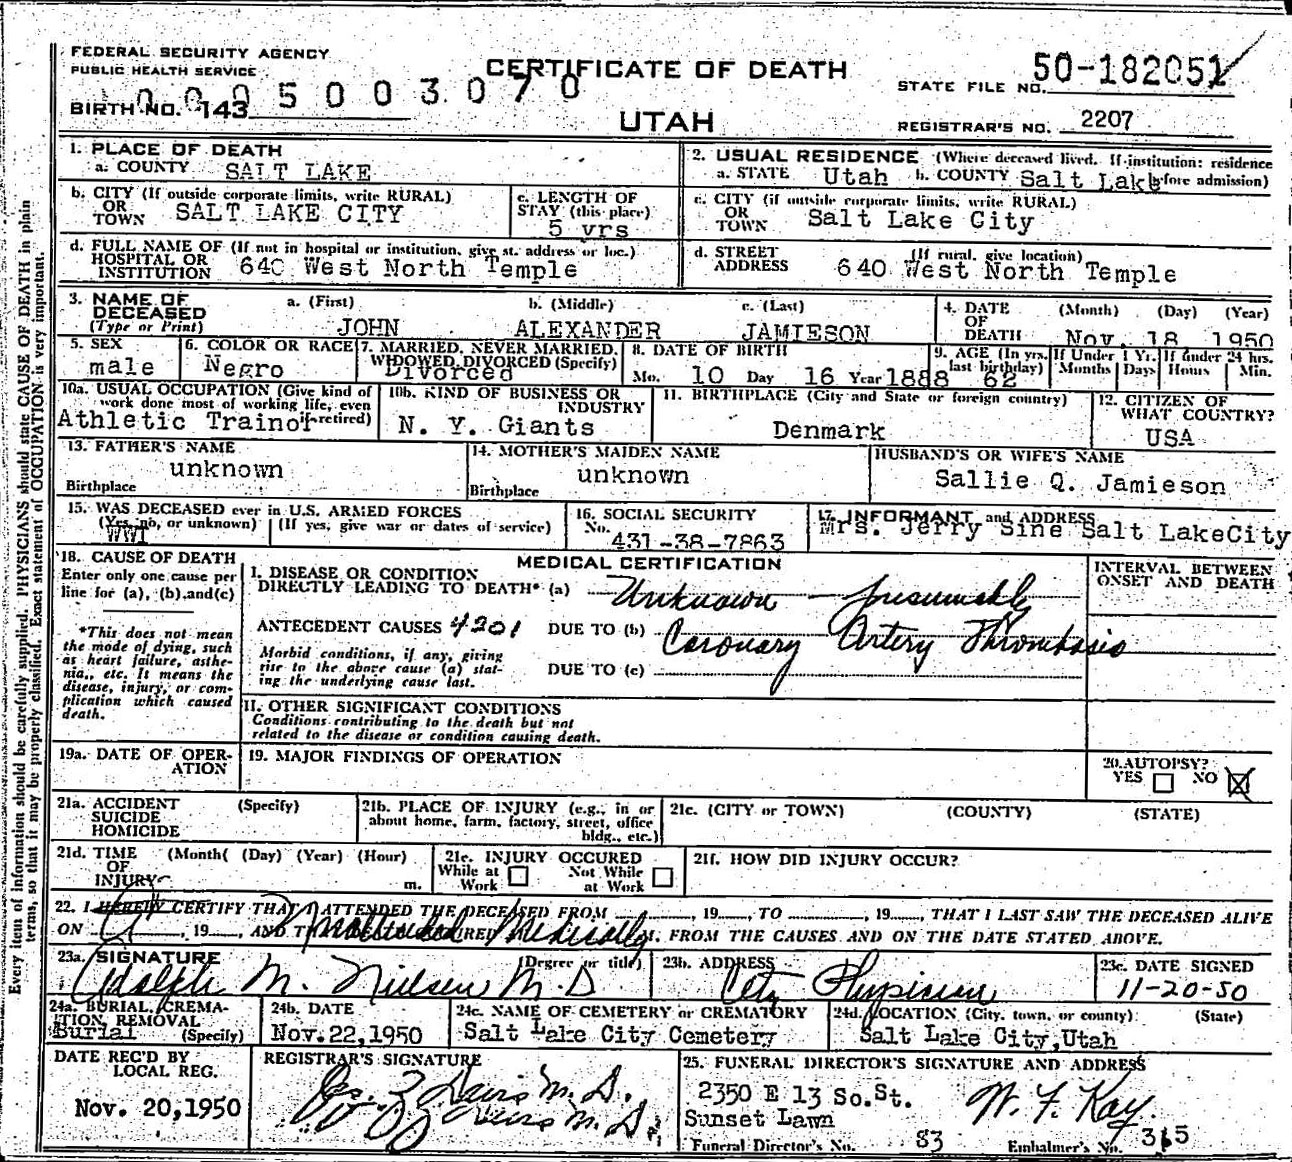 FEDERAL SECURITY AGENCY
PUBLIC HEALTH SERVICE
CERTIFICATE OF DEATH
STATE FILE NO. 50-182051
0005003070
BIRTH NO. 143
UTAH
REGISTRAR'S NO. 2207
1. PLACE OF DEATH
a. COUNTY SALT LAKE
2. USUAL RESIDENCE (Where deceased lived. If institution: residence before admission)
a. STATE Utah b. COUNTY Salt Lake
b. CITY (If outside corporate limits, write RURAL)
OR
TOWN SALT LAKE CITY
c. LENGTH OF
STAY (this place)
5 yrs
c. CITY (if outside corporate limits, write RURAL)
OR
TOWN Salt Lake City
d. FULL NAME OF (If not in hospital or institution, give st. address or loc.)
HOSPITAL OR
INSTITUTION 640 West North Temple
d. STREET (If rural, give location)
ADDRESS 640 West North Temple
3. NAME OF
DECEASED
(Type or Print)
a. (First) b. (Middle) c. (Last)
JOHN ALEXANDER JAMIESON
4. DATE (Month) (Day) (Year)
OF
DEATH Nov. 18 1950
5. SEX
male
6. COLOR OR RACE
Negro
7. MARRIED, NEVER MARRIED,
WIDOWED, DIVORCED (Specify)
Divorced
8. DATE OF BIRTH
Mo. 10 Day 16 Year 1888
9. AGE (In yrs.
last birthday) 62
If Under 1 Yr.
Months Days
If under 24 hrs.
Hours Min.
10a. USUAL OCCUPATION (Give kind of
work done most of working life, even
if retired)
Athletic Trainor
10b. KIND OF BUSINESS OR
INDUSTRY
N. Y. Giants
11. BIRTHPLACE (City and State or foreign country)
Denmark
12. CITIZEN OF
WHAT COUNTRY?
USA
13. FATHER'S NAME
unknown
Birthplace
14. MOTHER'S MAIDEN NAME
unknown
Birthplace
HUSBAND'S OR WIFE'S NAME
Sallie Q. Jamieson
15. WAS DECEASED ever in U.S. ARMED FORCES
(Yes, no, or unknown) (If yes, give war or dates of service)
WWI
16. SOCIAL SECURITY
No. 431-38-7863
17. INFORMANT and ADDRESS
Mrs. Jerry Sine Salt LakeCity
18. CAUSE OF DEATH
Enter only one cause per
line for (a), (b),and(c)
*This does not mean
the mode of dying, such
as heart failure, asthe-
nia, etc. It means the
disease, injury, or com-
plication which caused
death.
MEDICAL CERTIFICATION
INTERVAL BETWEEN
ONSET AND DEATH
I. DISEASE OR CONDITION
DIRECTLY LEADING TO DEATH* (a) Unknown - presumably
ANTECEDENT CAUSES 4201 DUE TO (b) Coronary Artery Thrombosis
Morbid conditions, if any, giving
rise to the above cause (a) stat-
ing the underlying cause last.
DUE TO (c)
II. OTHER SIGNIFICANT CONDITIONS
Conditions contributing to the death but not
related to the disease or condition causing death.
19a. DATE OF OPER-
ATION
19. MAJOR FINDINGS OF OPERATION
20. AUTOPSY?
YES NO X
21a. ACCIDENT (Specify)
SUICIDE
HOMICIDE
21b. PLACE OF INJURY (e.g., in or
about home, farm, factory, street, office
bldg., etc.)
21c. (CITY or TOWN) (COUNTY) (STATE)
21d. TIME (Month( (Day) (Year) (Hour)
OF
INJURY m.
21e. INJURY OCCURED
While at Work Not While at Work
21f. HOW DID INJURY OCCUR?
22. I HEREBY CERTIFY THAT I ATTENDED THE DECEASED FROM , 19 , TO , 19 , THAT I LAST SAW THE DECEASED ALIVE
ON , 19 , AND M. FROM THE CAUSES AND ON THE DATE STATED ABOVE.
Not attended Medically
23a. SIGNATURE (Degree or title)
Adolph M. Nielsen M.D
23b. ADDRESS
City Physician
23c. DATE SIGNED
11-20-50
24a. BURIAL, CREMA-
TION, REMOVAL
(Specify)
Burial
24b. DATE
Nov.22,1950
24c. NAME OF CEMETERY or CREMATORY
Salt Lake City Cemetery
24d. LOCATION (City, town, or county) (State)
Salt Lake City,Utah
DATE REC'D BY
LOCAL REG.
Nov. 20,1950
REGISTRAR'S SIGNATURE
25. FUNERAL DIRECTOR'S SIGNATURE AND ADDRESS
2350 E 13 So.St.
Sunset Lawn
W. F. Kay.
Funeral Director's No. 83 Embalmer's No. 315
Every item of information should be carefully supplied. PHYSICIANS should state CAUSE OF DEATH in plain
terms, so that it may be properly classified. Exact statement of OCCUPATION is very important.